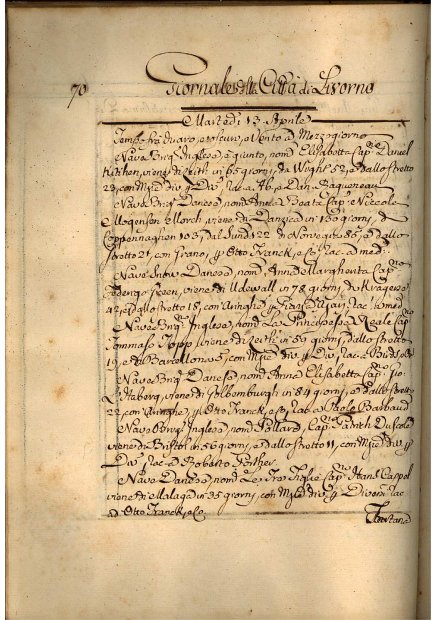 70
Giornale della Città di Livorno
Martedi 13 Aprile
Tempo frà duaro, e oscuro, e Vento a Mezzogiorno
Nave Brig. Inglese è giunto, nom.a Elisabetta Cap.no Daniel
Kitchen, viene di Leith in 65 giorni, da Wight 52, e dallo stretto
23, con Mer. div. p. Div. rac. a
Nave Brig. Danese, nom. Beata Cap. Niccole
Mogensen Morch, viene di Danzica in 156 giorni, da
Coppennaghen 103, dal Sund 122 di Norvegia 86, e dallo
stretto 21, con grano, p. Otto Franck, e Co. rac. a med.
Nave Danese, nom. Anna Margherita Cap.no
Federigo viene di Udewall in 78 giorni, da Krageso
42, e dallo stretto 18, con Aringhe p. rac. al med.
Nave Brig. Inglese, nom. La Principessa Reale Cap.no
Tommaso viene di Leith in 59 giorni, dallo stretto
19, e da Barcellona 5, con Mer. div. p. Div. rac. a
Nave Brig. Danese, nom. Anna Elisabetta Cap.no Gio.
viene di in 84 giorni, e dallo stretto
22, con Aringhe, p. Otto Franck, e Co. rac. a Paolo Barbaud
Nave Brig. Inglese, nom. Pollard, Cap.no
viene di Bristol in 56 giorni, e dallo stretto 11, con Mer. div. p.
Div. rac. a Roberto Porther
Nave Danese, nom. Le Tre Figlie Cap.no Hans Caspol
viene di Malaga in 35 giorni, con Mer. div. p. Diversi rac.
a Otto Franck, e Co.
Tartana